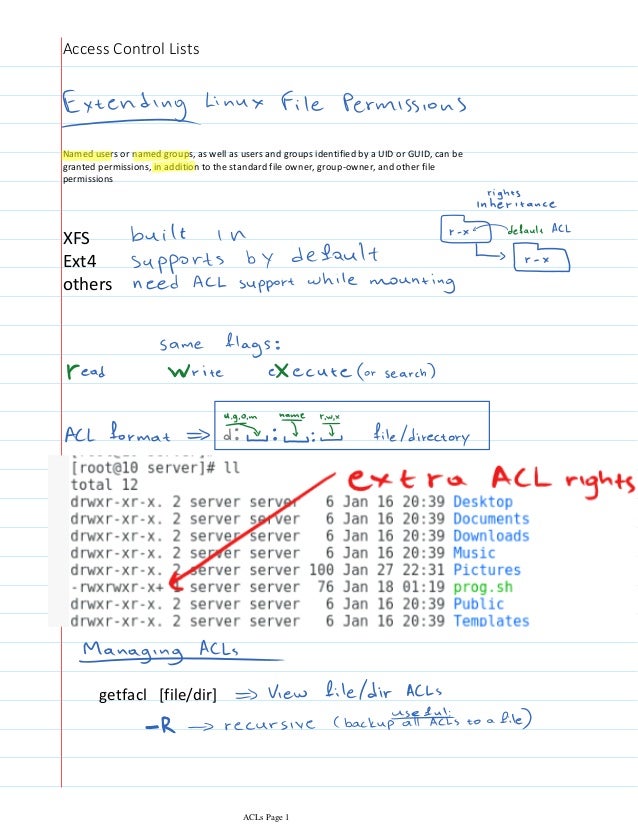 Access Control Lists
Extending Linux File Permissions
Named users or named groups, as well as users and groups identified by a UID or GUID, can be
granted permissions, in addition to the standard file owner, group-owner, and other file
permissions
rights
inheritance
r-x default ACL
r-x
XFS built in
Ext4 supports by default
others need ACL support while mounting
same flags:
read write eXecute (or search)
u,g,o,m name r,w,x
ACL format ⇒ d: : : file/directory
[root@10 server]# ll
extra ACL rights
total 12
drwxr-xr-x. 2 server server 6 Jan 16 20:39 Desktop
drwxr-xr-x. 2 server server 6 Jan 16 20:39 Documents
drwxr-xr-x. 2 server server 6 Jan 16 20:39 Downloads
drwxr-xr-x. 2 server server 6 Jan 16 20:39 Music
drwxr-xr-x. 2 server server 100 Jan 27 22:31 Pictures
-rwxrwxr-x+ server server 76 Jan 18 01:19 prog.sh
drwxr-xr-x. 2 server server 6 Jan 16 20:39 Public
drwxr-xr-x. 2 server server 6 Jan 16 20:39 Templates
Managing ACLs
getfacl [file/dir] ⇒ View file/dir ACLs
useful:
-R → recursive (backup all ACLs to a file)
ACLs Page 1